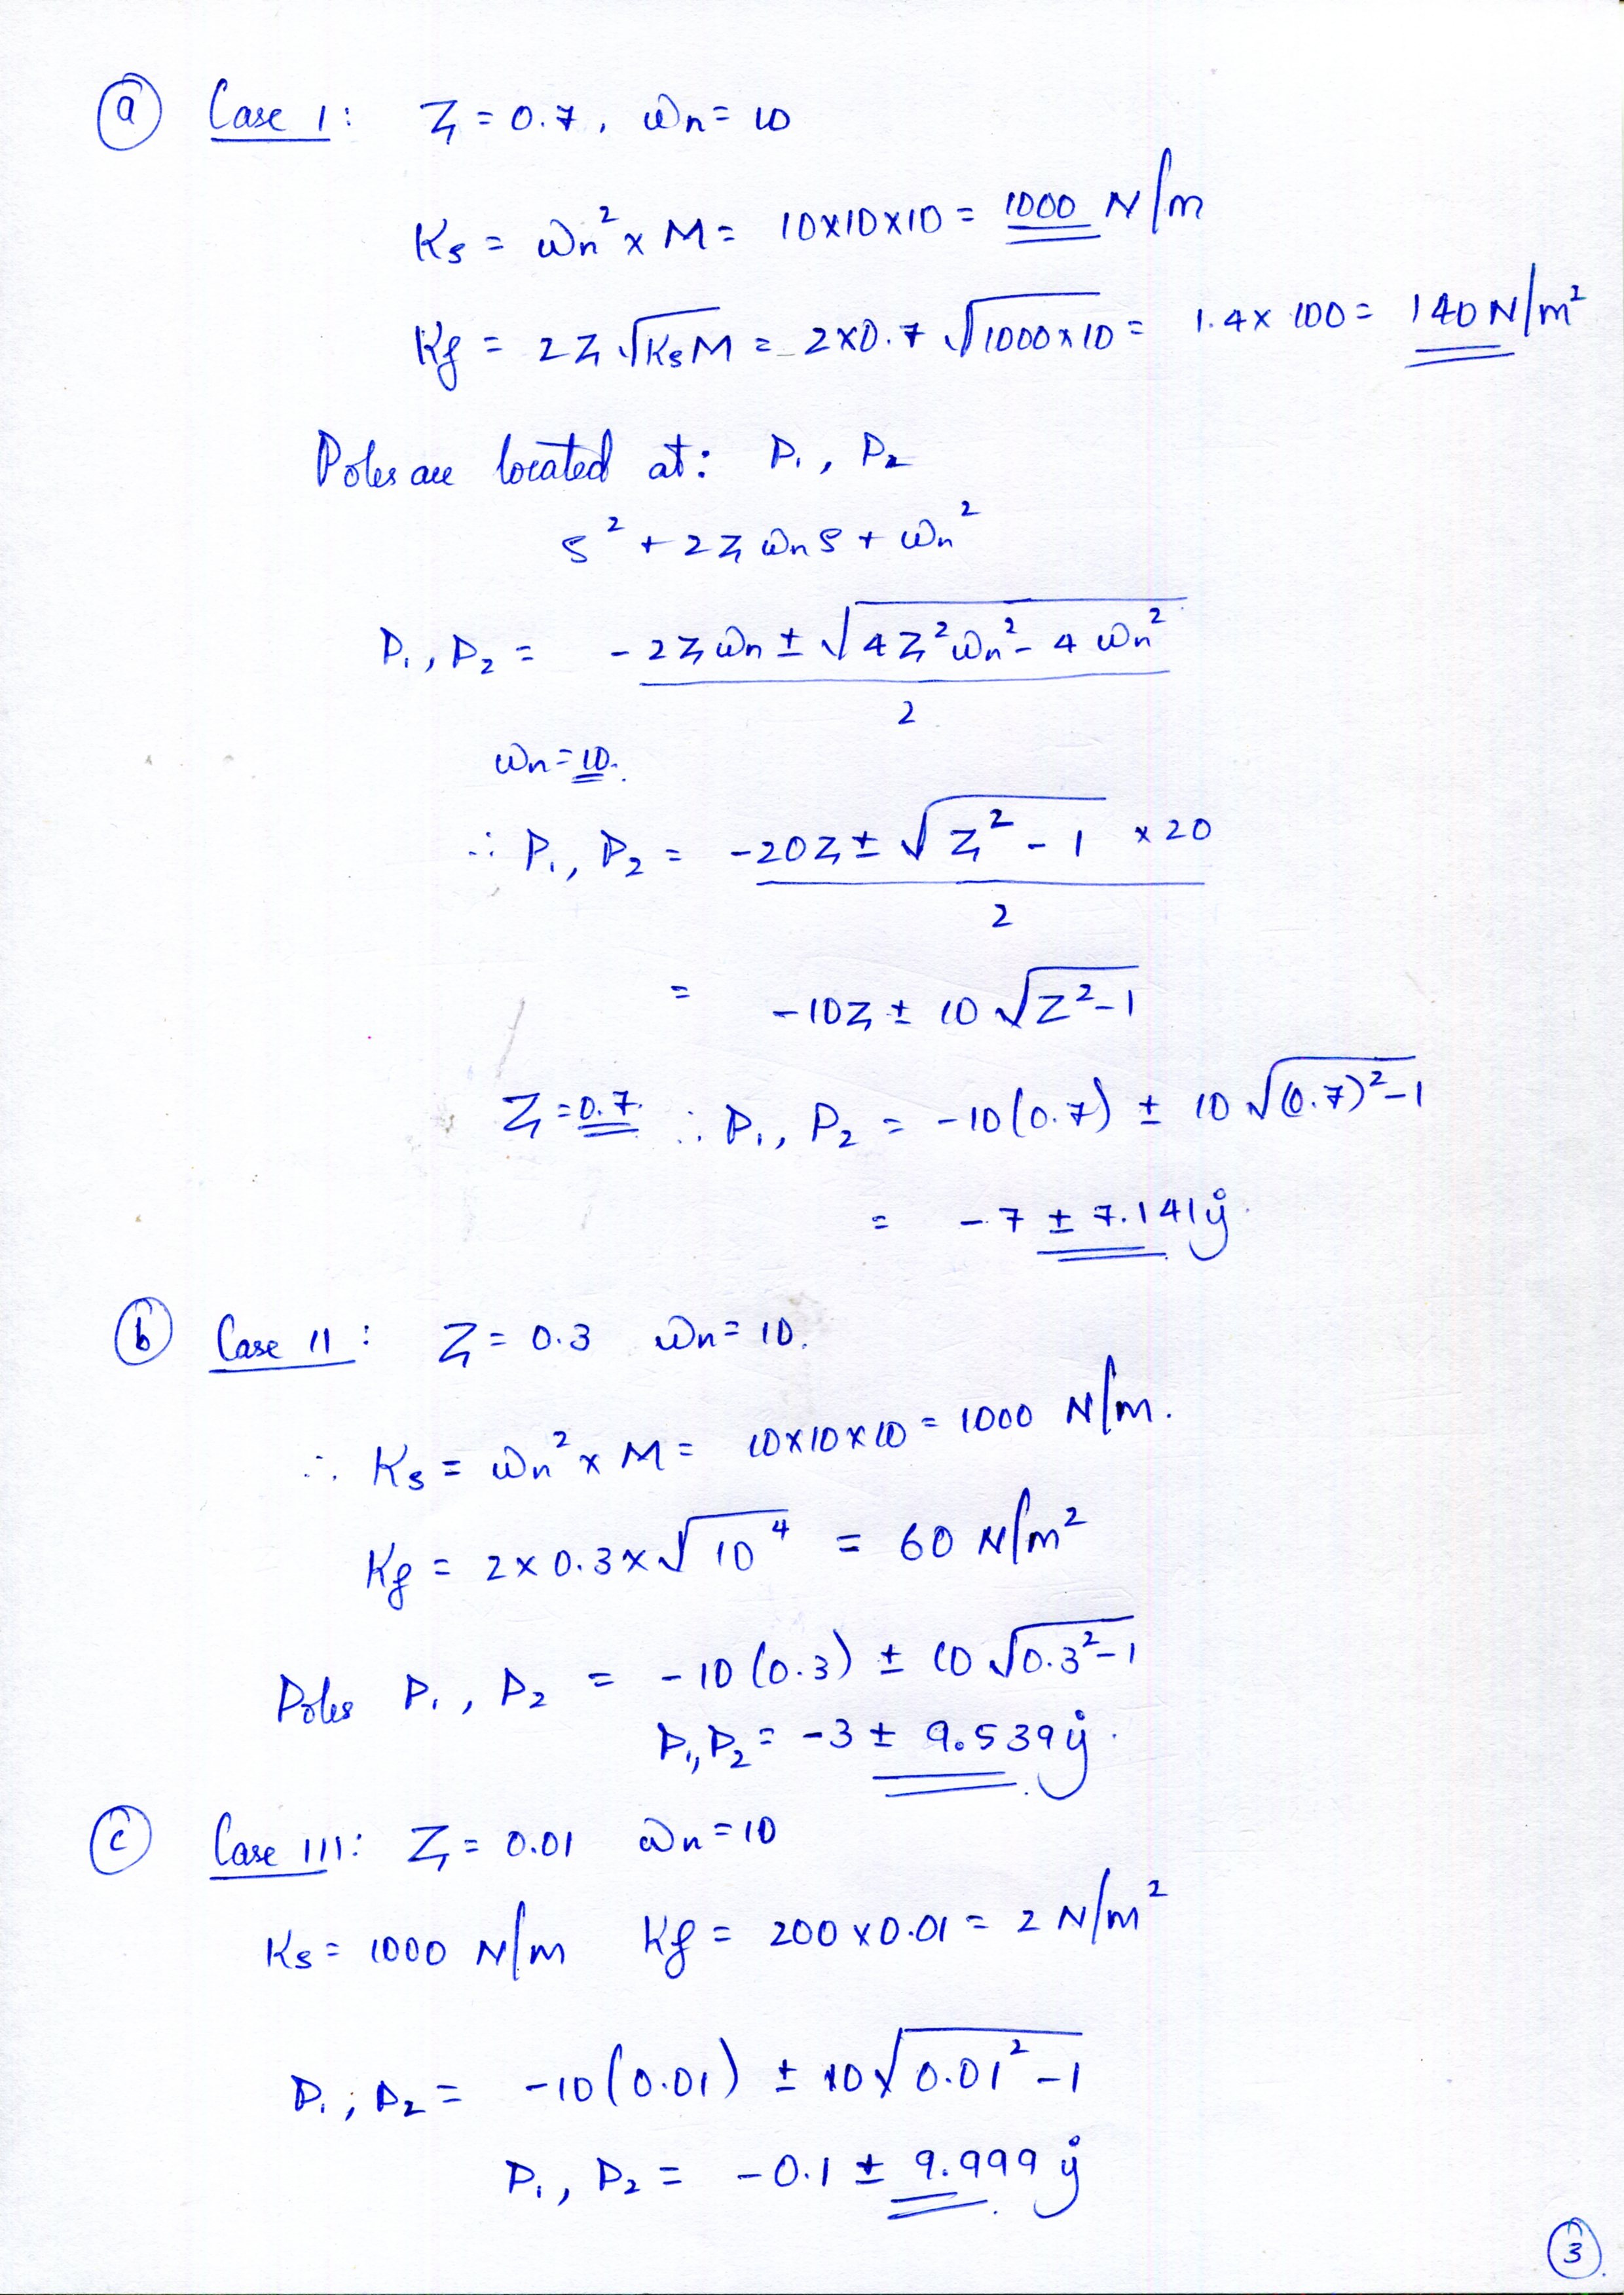 (a) Case I: ζ = 0.7, ωn = 10
Ks = ωn² x M = 10x10x10 = 1000 N/m
Kf = 2ζ √KsM = 2x0.7 √1000x10 = 1.4x 100 = 140 N/m²
Poles are located at: P1, P2
s² + 2ζ ωn s + ωn²
P1, P2 = - 2ζ ωn ± √4ζ²ωn² - 4 ωn²
2
ωn = 10.
∴ P1, P2 = -20ζ ± √ζ² - 1 x 20
2
= -10ζ ± 10 √ζ²-1
ζ = 0.7. ∴ P1, P2 = -10(0.7) ± 10 √(0.7)²-1
= -7 ± 7.141j.
(b) Case II: ζ = 0.3 ωn = 10.
∴ Ks = ωn² x M = 10x10x10 = 1000 N/m.
Kf = 2x 0.3x √10⁴ = 60 N/m²
Poles P1, P2 = -10(0.3) ± 10 √0.3²-1
P1, P2 = -3 ± 9.539j.
(c) Case III: ζ = 0.01 ωn = 10
Ks = 1000 N/m Kf = 200 x0.01 = 2 N/m²
P1, P2 = -10(0.01) ± 10√0.01²-1
P1, P2 = -0.1 ± 9.999 j.
(3).